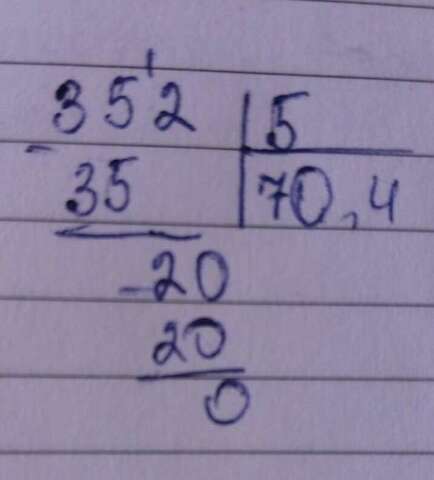 352 | 5
- 35 | 70,4
-20
20
0